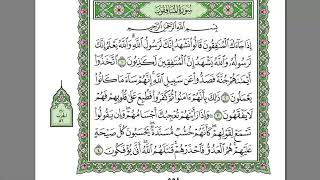 سورة المنافقون
بسم الله الرحمن الرحيم
إذا جاءك المنافقون قالوا نشهد إنك لرسول الله والله يعلم إنك
لرسوله والله يشهد إن المنافقين لكاذبون ١ اتخذوا
أيمانهم جنة فصدوا عن سبيل الله إنهم ساء ما كانوا
يعملون ٢ ذلك بأنهم آمنوا ثم كفروا فطبع على قلوبهم فهم
لا يفقهون ٣ وإذا رأيتهم تعجبك أجسامهم وإن يقولوا
تسمع لقولهم كأنهم خشب مسندة يحسبون كل صيحة
عليهم هم العدو فاحذرهم قاتلهم الله أنى يؤفكون ٤
٥٥٤